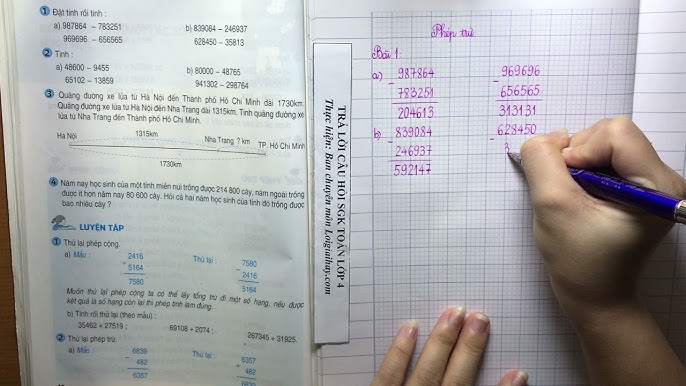 1 Đặt tính rồi tính :
a) 987864 – 783251 b) 839084 – 246937
969696 – 656565 628450 – 35813
2 Tính :
a) 48600 – 9455 b) 80000 – 48765
65102 – 13859 941302 – 298764
3 Quãng đường xe lửa từ Hà Nội đến Thành phố Hồ Chí Minh dài 1730km.
Quãng đường xe lửa từ Hà Nội đến Nha Trang dài 1315km. Tính quãng đường xe
lửa từ Nha Trang đến Thành phố Hồ Chí Minh.
Hà Nội 1315km Nha Trang ? km TP. Hồ Chí Minh
1730km
4 Năm nay học sinh của một tỉnh miền núi trồng được 214 800 cây, năm ngoái trồng
được ít hơn năm nay 80 600 cây. Hỏi cả hai năm học sinh của tỉnh đó trồng được
bao nhiêu cây ?
LUYỆN TẬP
1 Thử lại phép cộng.
a) Mẫu : 2416 Thử lại : 7580
+ 5164 – 2416
7580 5164
Muốn thử lại phép cộng ta có thể lấy tổng trừ đi một số hạng, nếu được
kết quả là số hạng còn lại thì phép tính làm đúng.
b) Tính rồi thử lại (theo mẫu) :
35462 + 27519 ; 69108 + 2074 ; 267345 + 31925.
2 Thử lại phép trừ.
a) Mẫu : 6839 Thử lại : 6357
– 482 + 482
6357
TRẢ LỜI CÂU HỎI SGK TOÁN LỚP 4
Thực hiện: Ban chuyên môn Loigiaihay.com
Phép trừ
Bài 1
a) 987864 969696
– 783251 – 656565
204613 313131
b) 839084 628450
– 246937 – 3
592147